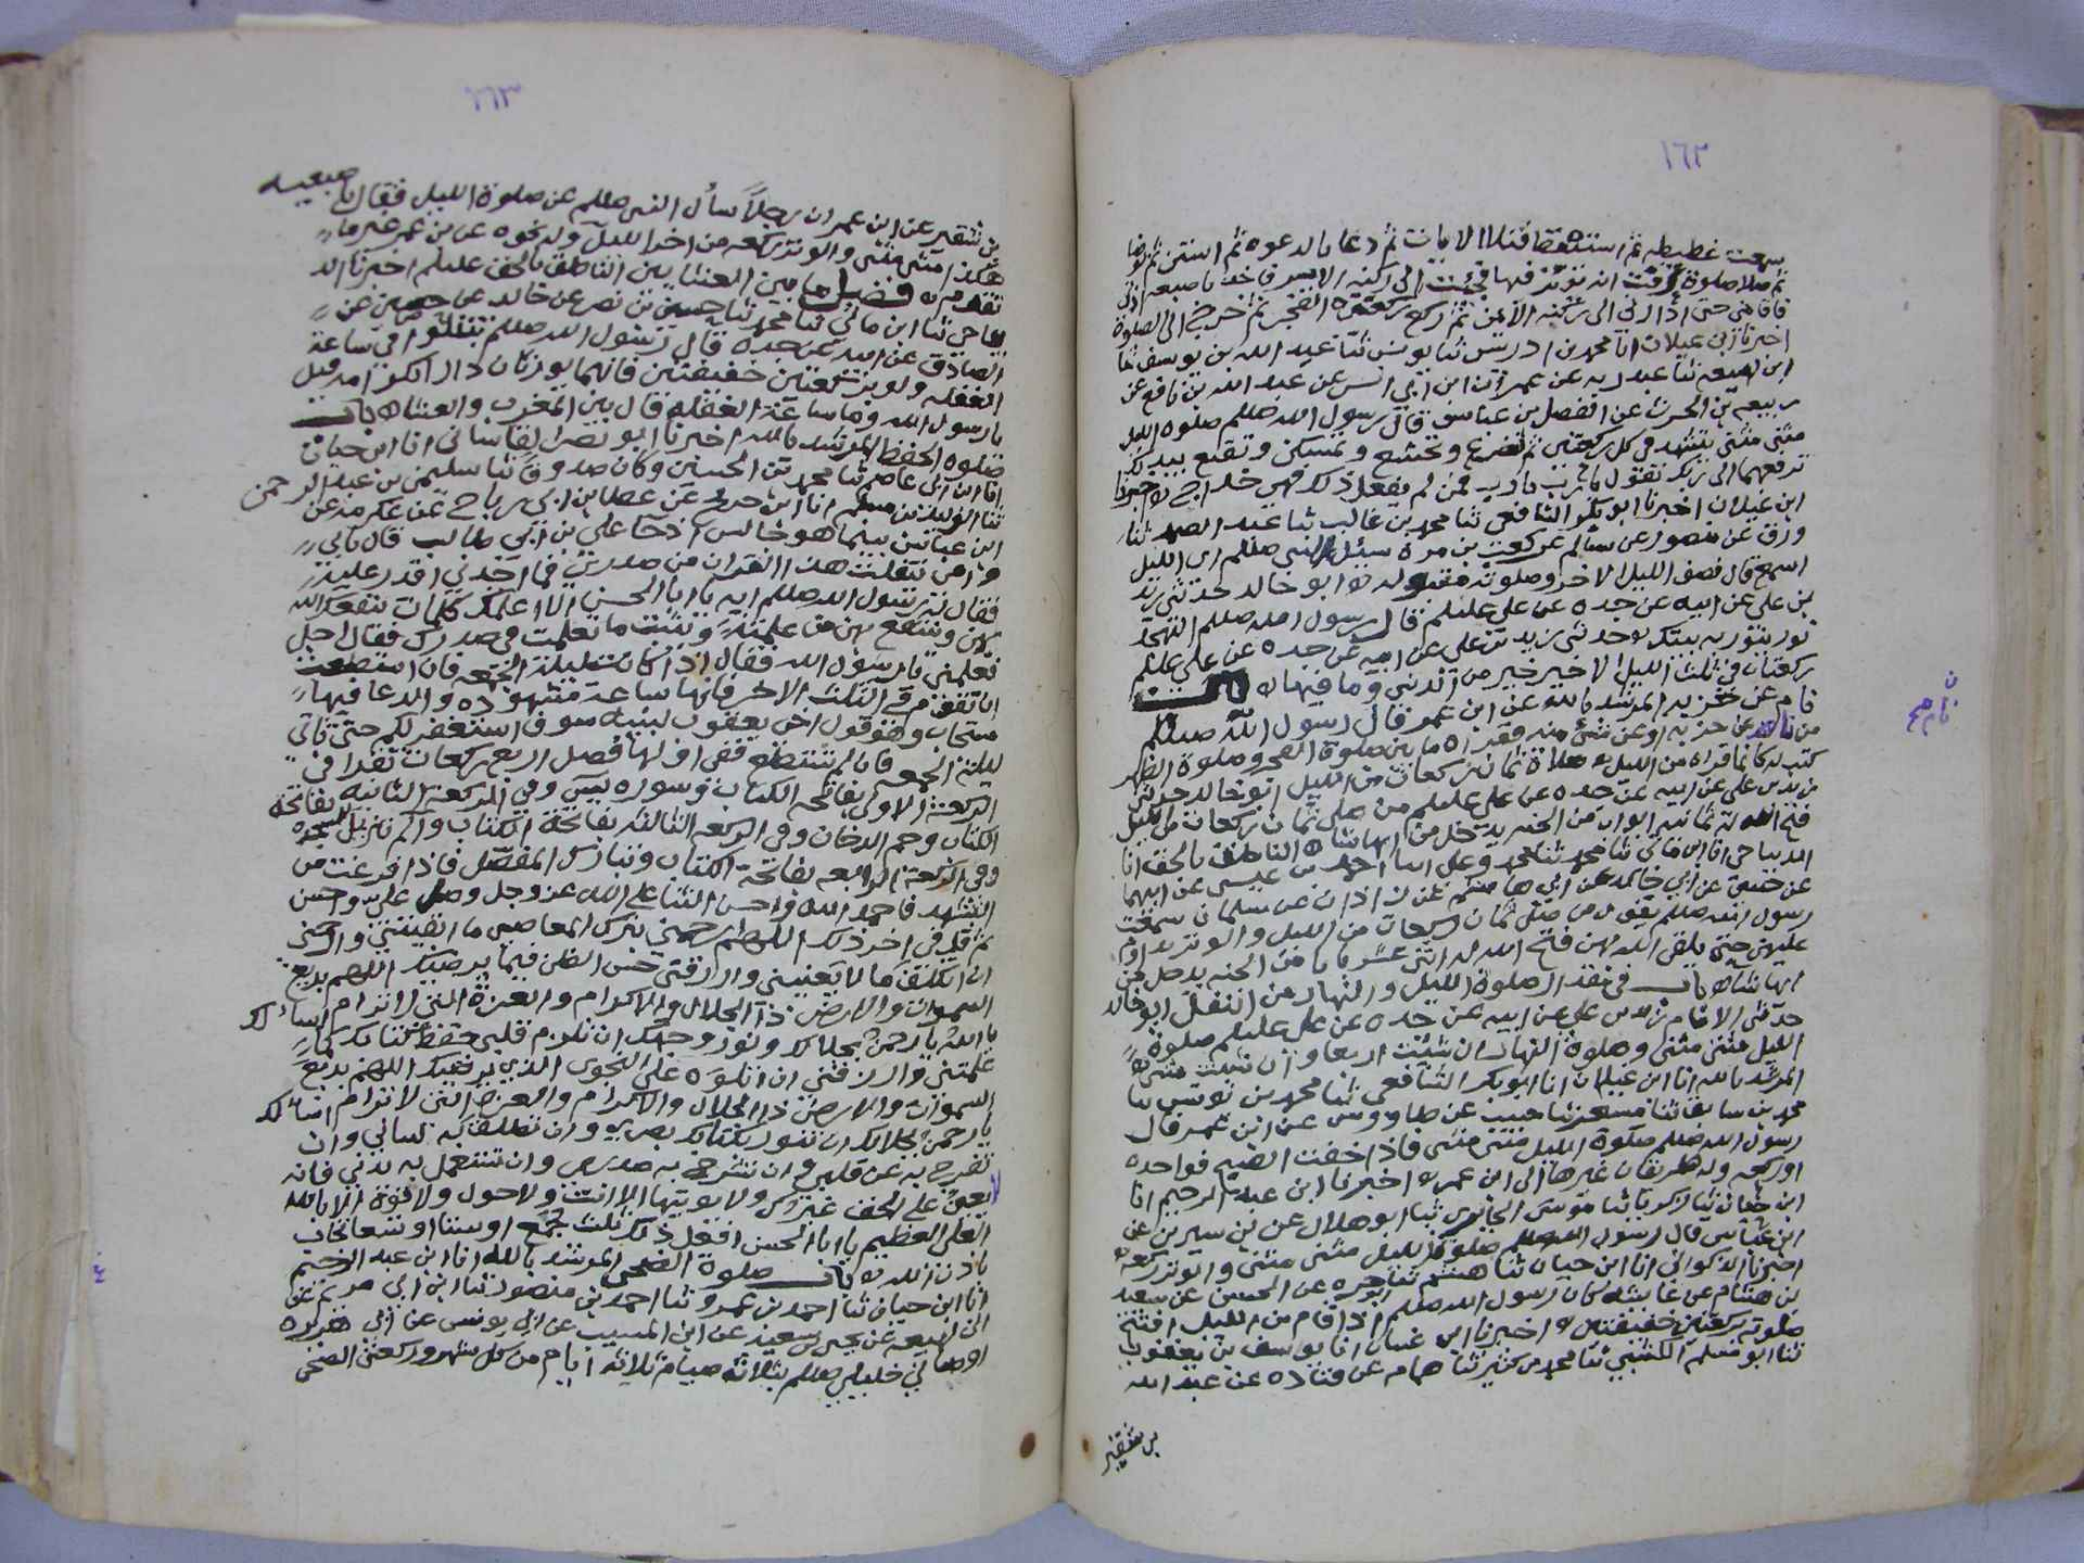 ١٦٢
سمعت غطيطه ثم استيقظ فتلا الايات ثم دعا بالدعوه ثم استن ثم توضا
ثم صلا صلوة عرفت انه يوتر فيها فجئت الى ركنه الايسر فاخذ باصبعه اذني
فاقامني حتى ادارني الى ركنه الايمن ثم اركع ركعتي الفجر ثم خرج الى الصلوة
اخبرنا ابن غيلان انا محمد بن ادريس ثنا يونس ثنا عبد الله بن يوسف ثنا
ابن لهيعه ثنا عبد ربه عن عمران ابن ابي انس عن عبد الله بن نافع عن
ربيعه بن الحرث عن الفضل بن عباس قال رسول الله صللم صلوه الليل
مثنى مثنى تشهد في كل ركعتين ثم تضرع وتخشع وتمسكن وتقنع بيديك
ترفعهما الى ربك تقول يا رب يا رب فمن لم يفعل ذلك فهي خداج اخبرنا
ابن غيلان اخبرنا ابو بكر الشافعي ثنا محمد بن غالب ثنا عبد الصمد ثنا
ورق عن منصور عن سالم عن كعب بن مره سئل النبي صللم اي الليل
اسمع قال نصف الليل الاخر وصلوته مقبوله ابو خالد حدثني زيد
بن علي عن ابيه عن جده عن علي عليلم قال رسول الله صللم التهجد
نور ينور به بيتك وحدثني زيد بن علي عن ابيه عن جده عن علي عليلم
ركعتان في ثلث الليل الاخير خير من الدني وما فيها باب
نام عن حزبه المرشد بالله عن ابن عمر قال رسول الله صللم
من نام عن حزبه او عن شيء منه فقراه ما بين صلوة الفجر وصلوة الظهر
كتب له كانما قراه من الليل صلاة ثمان ركعات من الليل ابو خالد حدثني
زيد بن علي عن ابيه عن جده عن علي عليلم من صلى ثمان ركعات من الليل
فتح الله له ثمانيه ابواب من الجنه يدخل من ايها شاء الناطق بالحق انا
الديباجي انا ابن ماتي ثنا محمد ثنا محمد وعلي ابنا احمد بن عيسى عن ابيهما
عن حسين عن ابي خالد عن ابي هاشم عن زاذان عن سلمان سمعت
رسول الله صللم يقول من صلى ثمان ركعات من الليل والوتر يداوم
عليهن حتى يلقى الله بهن فتح الله له اثنى عشر بابا من الجنه يدخل من
ايها شاء باب في تقدير صلوة الليل والنهار من النفل ابو خالد
حدثني الامام زيد بن علي عن ابيه عن جده عن علي عليلم صلوة
الليل مثنى مثنى وصلوة النهار ان شئت اربعا وان شئت مثنى
المرشد بالله انا ابن غيلان انا ابو بكر الشافعي ثنا محمد بن يونس ثنا
محمد بن سابق ثنا مسعر ثنا حبيب عن طاووس عن ابن عمر قال
رسول الله صللم صلوة الليل مثنى مثنى فاذا خفت الصبح فواحده
او ركعه وله طريقان غيرها الى ابن عمر اخبرنا ابن عبد الرحيم انا
ابن حيان ثنا زكريا ثنا موسى ثنا ابو هلال عن بن سيرين عن
ابن عباس قال رسول الله صللم صلوة الليل مثنى مثنى والوتر ركعه
اخبرنا الذكواني انا ابن حيان ثنا هشيم ثنا ابو حره عن الحسن عن سعد
بن هشام عن عائشه كان رسول الله صللم اذا قام من الليل افتتح
صلوته بركعتين خفيفتين اخبرنا ابن غسان انا يوسف بن يعقوب
ثنا ابو مسلم الكشي ثنا محمد بن كثير ثنا همام عن قتاده عن عبد الله
بن شقيق
بن شقير عن ابن عمر ان رجلا سأل النبي صللم عن صلوة الليل فقال باصبعيه
هكذا مثنى مثنى والوتر ركعه من اخر الليل وله نحوه عن بن عمر غير ما
تقدم فضل ما بين العشايين الناطق بالحق عليلم اخبرنا الد
يباجي ثنا ابن ماتي ثنا محمد ثنا حسن بن نصر عن خالد عن حصين عن
الصادق عن ابيه عن جده قال رسول الله صللم تنفلوا في ساعة
الغفله ولو بركعتين خفيفتين فانهما يوردان دار الكرامه قيل
يا رسول الله وما ساعة الغفله قال بين المغرب والعشاء باب
صلوه الحفظ المرشد بالله اخبرنا ابو نصر انا ابن حيان
انا ابن ابي عاصم ثنا محمد بن الحسين وكان صدوقا ثنا سليمن بن عبد الرحمن
ثنا الوليد بن مسلم انا ابن جريج عن عطا بن ابي رباح عن عكرمه عن
ابن عباس بينما هو جالس اذ جا علي بن ابي طالب قال بابي
وامي تفلت هذا القران من صدري فما اجدني اقدر عليه
فقال رسول الله صللم له يا ابا الحسن الا اعلمك كلمات ينفعك الله
بهن وينفع بهن من علمته ويثبت ما تعلمت في صدرك فقال اجل
فعلمني يا رسول الله فقال اذا كانت ليلة الجمعه فان استطعت
ان تقوم في الثلث الاخر فانها ساعة مشهوده والدعا فيها
مستجاب وهو قول اخي يعقوب لبنيه سوف استغفر لكم حتى تاتي
ليلة الجمعه فان لم تستطع ففي اولها فصل اربع ركعات تقرا في
الركعة الاولى بفاتحه الكتاب وسوره يس وفي الركعة الثانيه بفاتحة
الكتاب وحم الدخان وفي الركعه الثالثه بفاتحة الكتاب والم تنزيل السجده
وفي الركعة الرابعه بفاتحة الكتاب وتبارك المفصل فاذا فرغت من
التشهد فاحمد الله واحسن الثنا على الله عز وجل وصل علي واحسن
ثم قل في اخر ذلك اللهم ارحمني بترك المعاصي ما ابقيتني وارحمني
ان اتكلف ما لا يعنيني وارزقني حسن الظن فيما يرضيك اللهم بديع
السموات والارض ذا الجلال والاكرام والعزة التي لا ترام اسألك
يا الله يا رحمن بجلالك ونور وجهك ان تلزم قلبي حفظ كتابك كما
علمتني وارزقني ان اتلوه على النحوى الذي يرضيك اللهم بديع
السموات والارض ذا الجلال والاكرام والعزة التي لا ترام اسألك
يا رحمن بجلالك ان تنور بكتابك بصري وان تطلق به لساني وان
تفرج به عن قلبي وان تشرح به صدري وان تستعمل به بدني فانه
لا يعين على الحق غيرك ولا يوتيها الا انت ولا حول ولا قوة الا بالله
العلي العظيم يا ابا الحسن افعل ذلك ثلث جمع او ستا او سبعا تجاب
باذن الله باب صلوة الضحى المرشد بالله انا ابن عبد الرحيم
انا ابن حيان ثنا احمد بن عمرو ثنا احمد بن منصور ثنا ابن ابي مريم عن
ابن لهيعه عن يحيى بن سعيد عن ابن المسيب عن ابي يونس عن ابي هريره
اوصاني خليلي صللم بثلاثة صيام ثلاثه ايام من كل شهر وركعتي الضحى